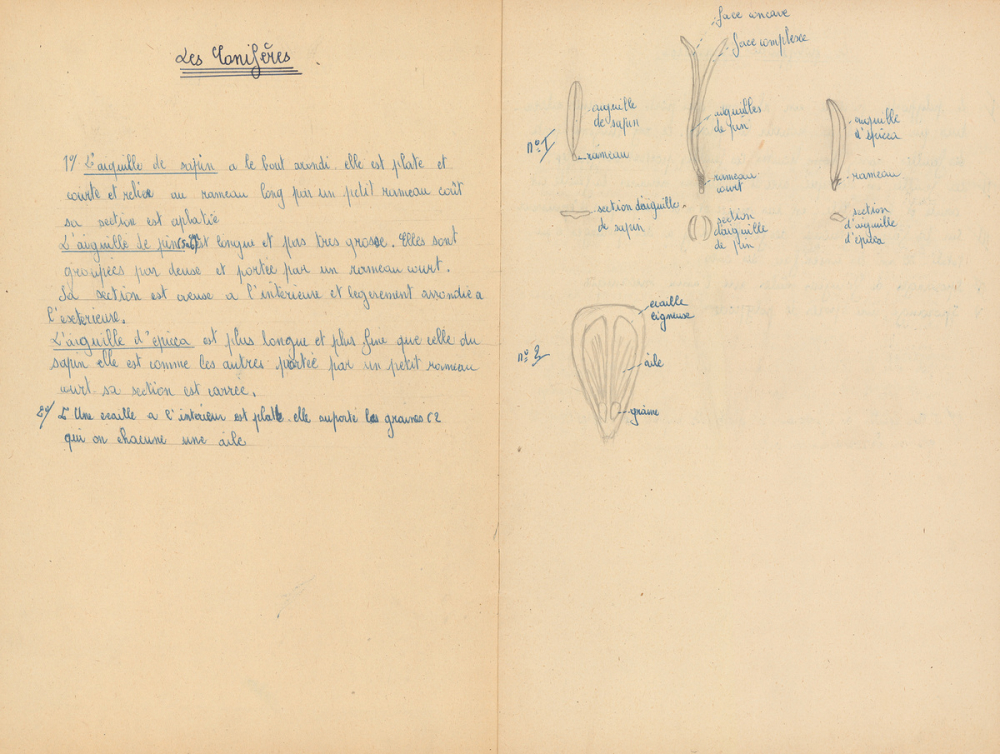 Les Conifères
1°/ L'aiguille de sapin a le bout arondi. elle est plate et
courte et reliée au rameau long par un petit rameau coût
sa section est aplatie
L'aiguille de pin est longue et pas tres grosse. Elles sont
groupées par deuse et portée par un rameau court.
Sa section est creuse a l'interieure et legerement arrondie a
l'exterieuse.
L'aiguille d'épicéa est plus longue et plus fine que celle du
sapin elle est comme les autres portée par un petit rameau
court. sa section est carrée.
2°/ Une ecaille a l'intérieur est plate. elle suporte les graines
qui on chacune une aile
face concave
face complexe
n° 1
aiguille
de sapin
rameau
aiguilles
de pin
rameau
court
aiguille
d'épicéa
rameau
section d'aiguille
de sapin
section
d'aiguille
de pin
section
d'aiguille
d'épicéa
n° 2
ecaille
ligneuse
aile
graine